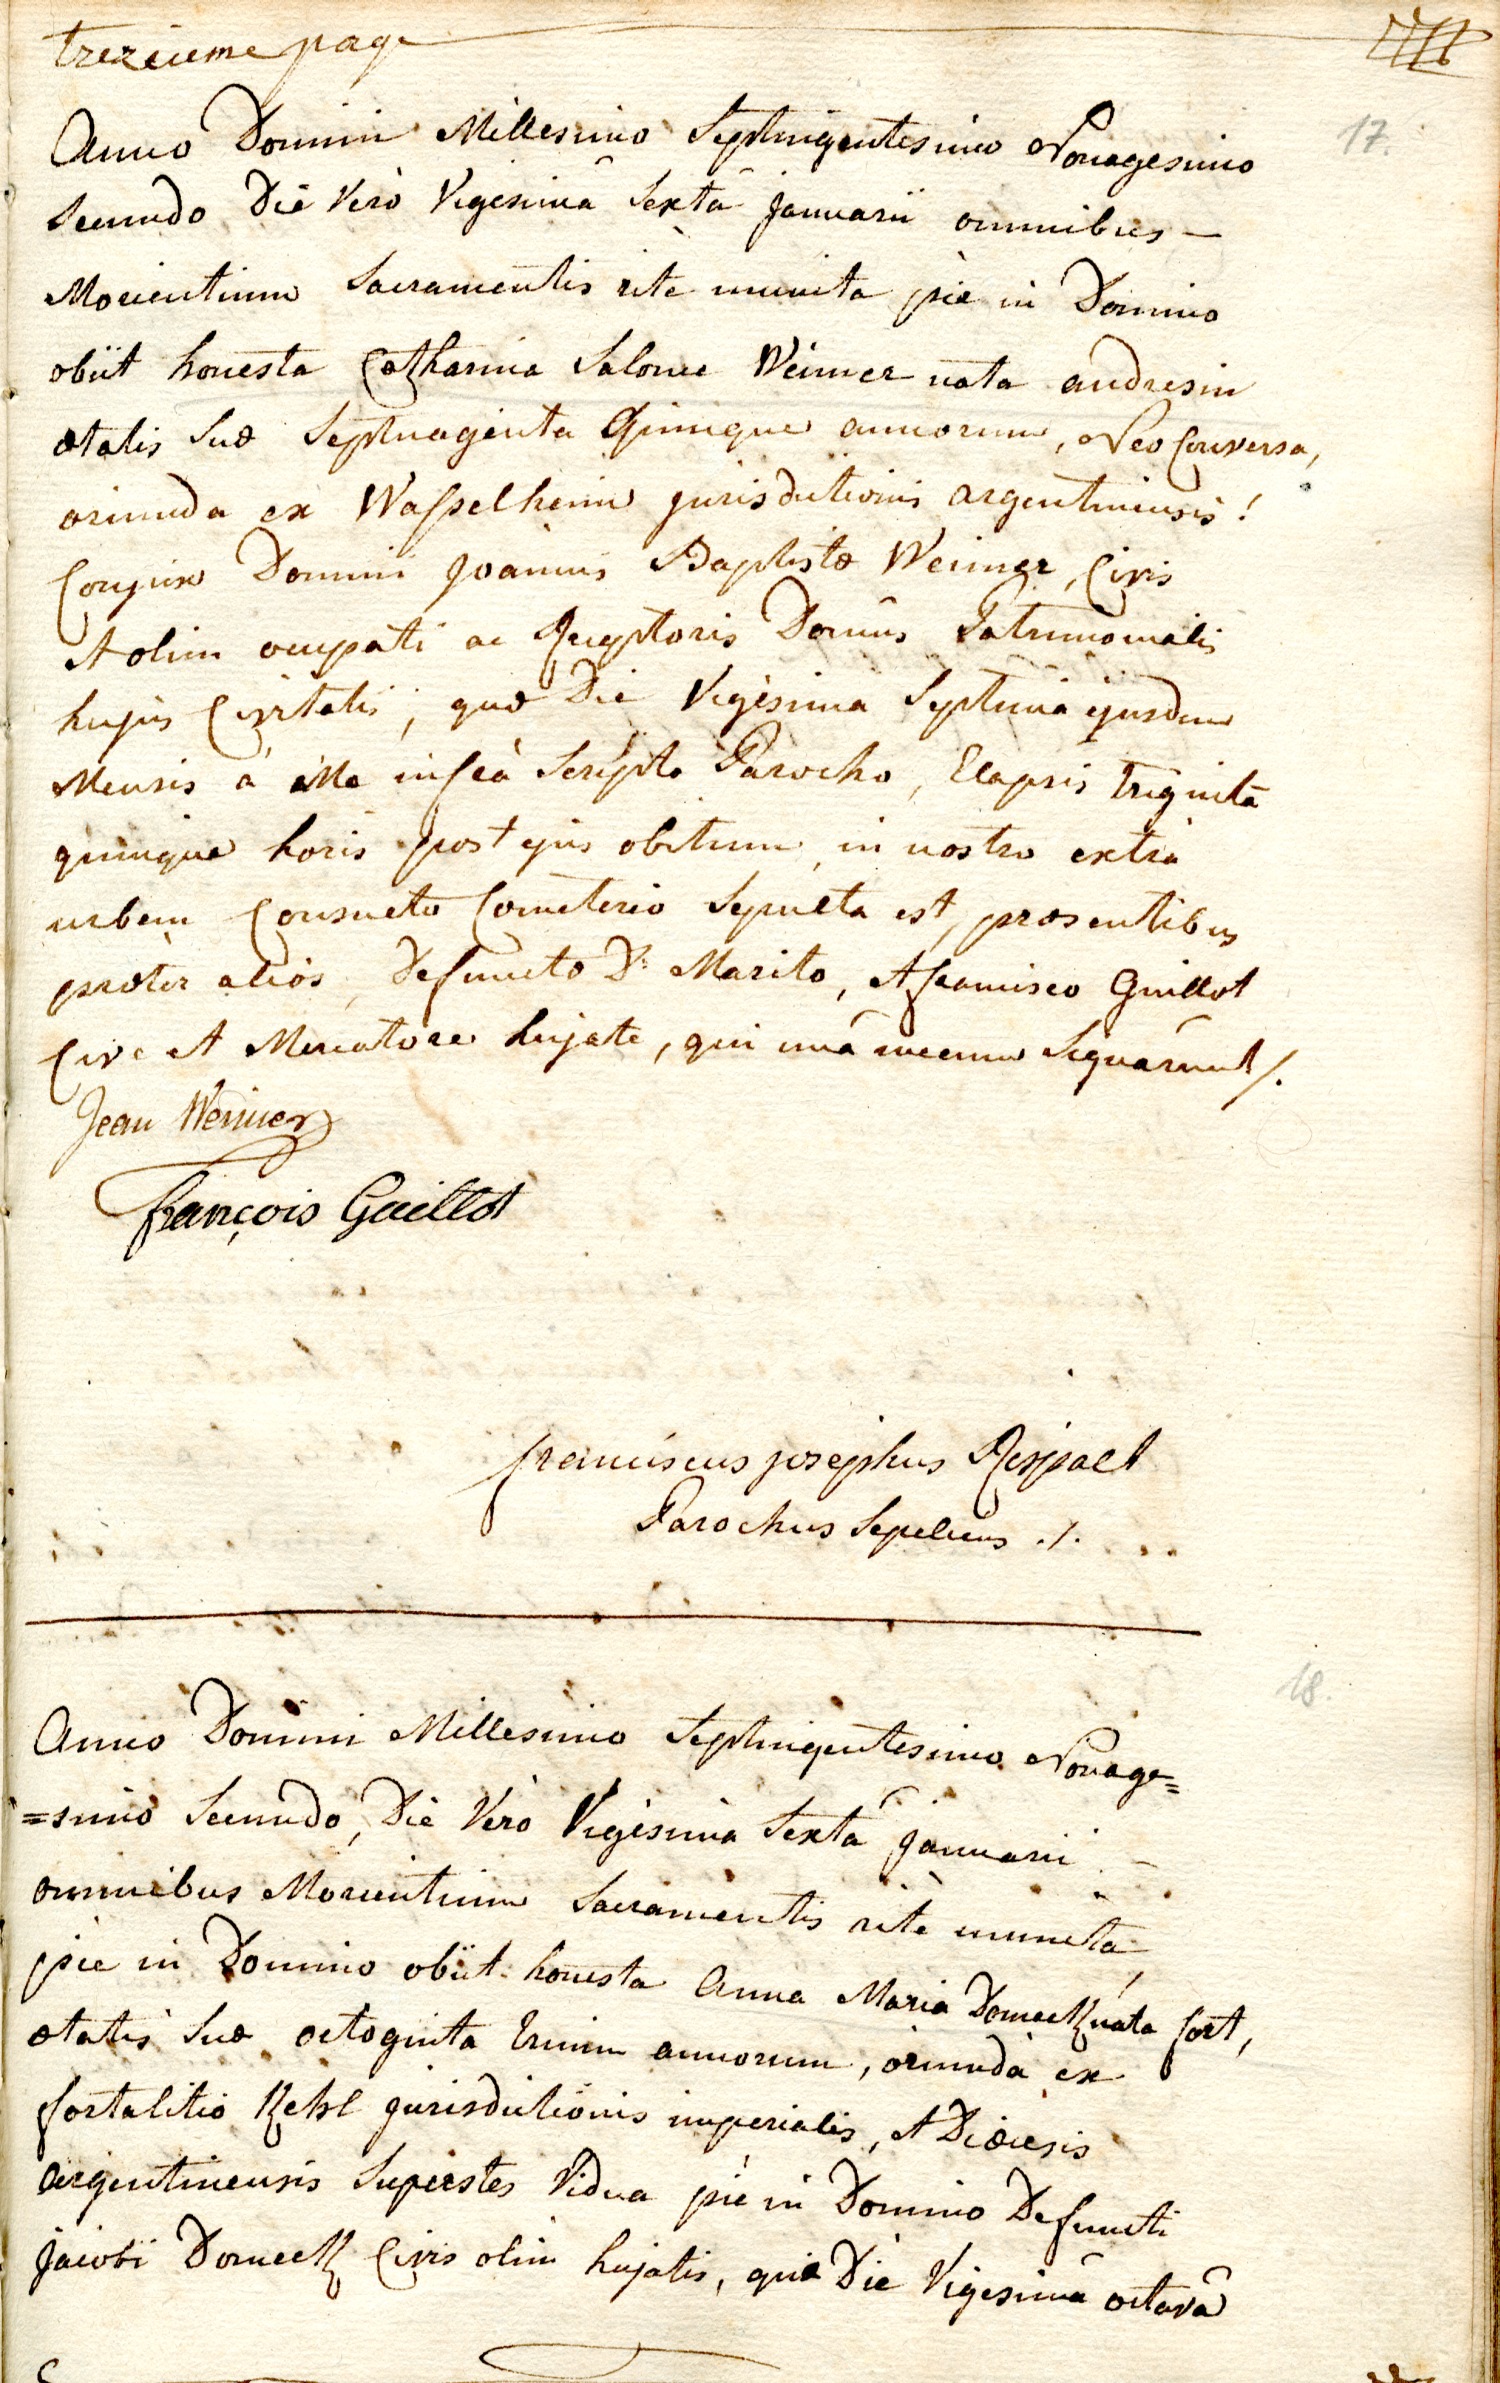 trezieme page
17.
Anno Domini Millesimo Septingentesimo Nonagesimo
Secundo Die Verò Vigesimâ Sextâ Januarii omnibus –
Morientium Sacramentis ritè munita piè in Domino
obiit honesta Catharina Salome Weimer nata andresin
ætatis Suæ Septuaginta Quinque annorum, Neo Conversa,
oriunda ex Wasselheim jurisdictionis argentinensis!
Conjux Domini Joannis Baptistæ Weimer, Civis
et olim occupati ac Receptoris Domûs Patrimonialis
hujus Civitatis, quæ Die Vigesima Septimâ ejusdem
Mensis à Me infrà Scripto Parocho, Elapsis trigintâ
quinque horis post ejus obitum, in nostro extrà
urbem Consueto Cometerio Sepulta est, præsentibus
præter aliòs, Defunctæ D: Marito, et francisco Guillot
Cive et Mercatore hujate, qui unâ mecum Signârunt /.
Jean Weimer
françois Guillot
franciscus josephus
Parochus Sepeliens ./.
18.
Anno Domini Millesimo Septingentesimo Nonage=
=simo Secundo, Die Verò Vigesimâ Sextâ Januarii –
omnibus Morientium Sacramentis ritè munita
piè in Domino obiit honesta Anna Maria nata fort,
ætatis Suæ octoginta Unum annorum, oriunda ex
fortalitio Kehl jurisdictionis imperialis, et Diœcesis
argentinensis Superstes Vidua piè in Domino Defuncti
Jacobi Civis olim hujatis, quæ Die Vigesimâ octavâ